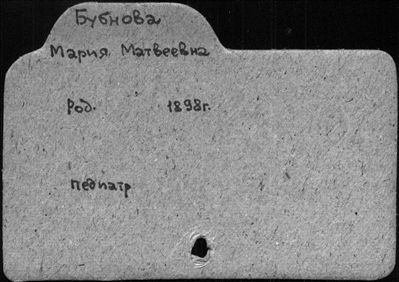 Бубнова
Мария Матвеевна
Род. 1898г.
педиатр